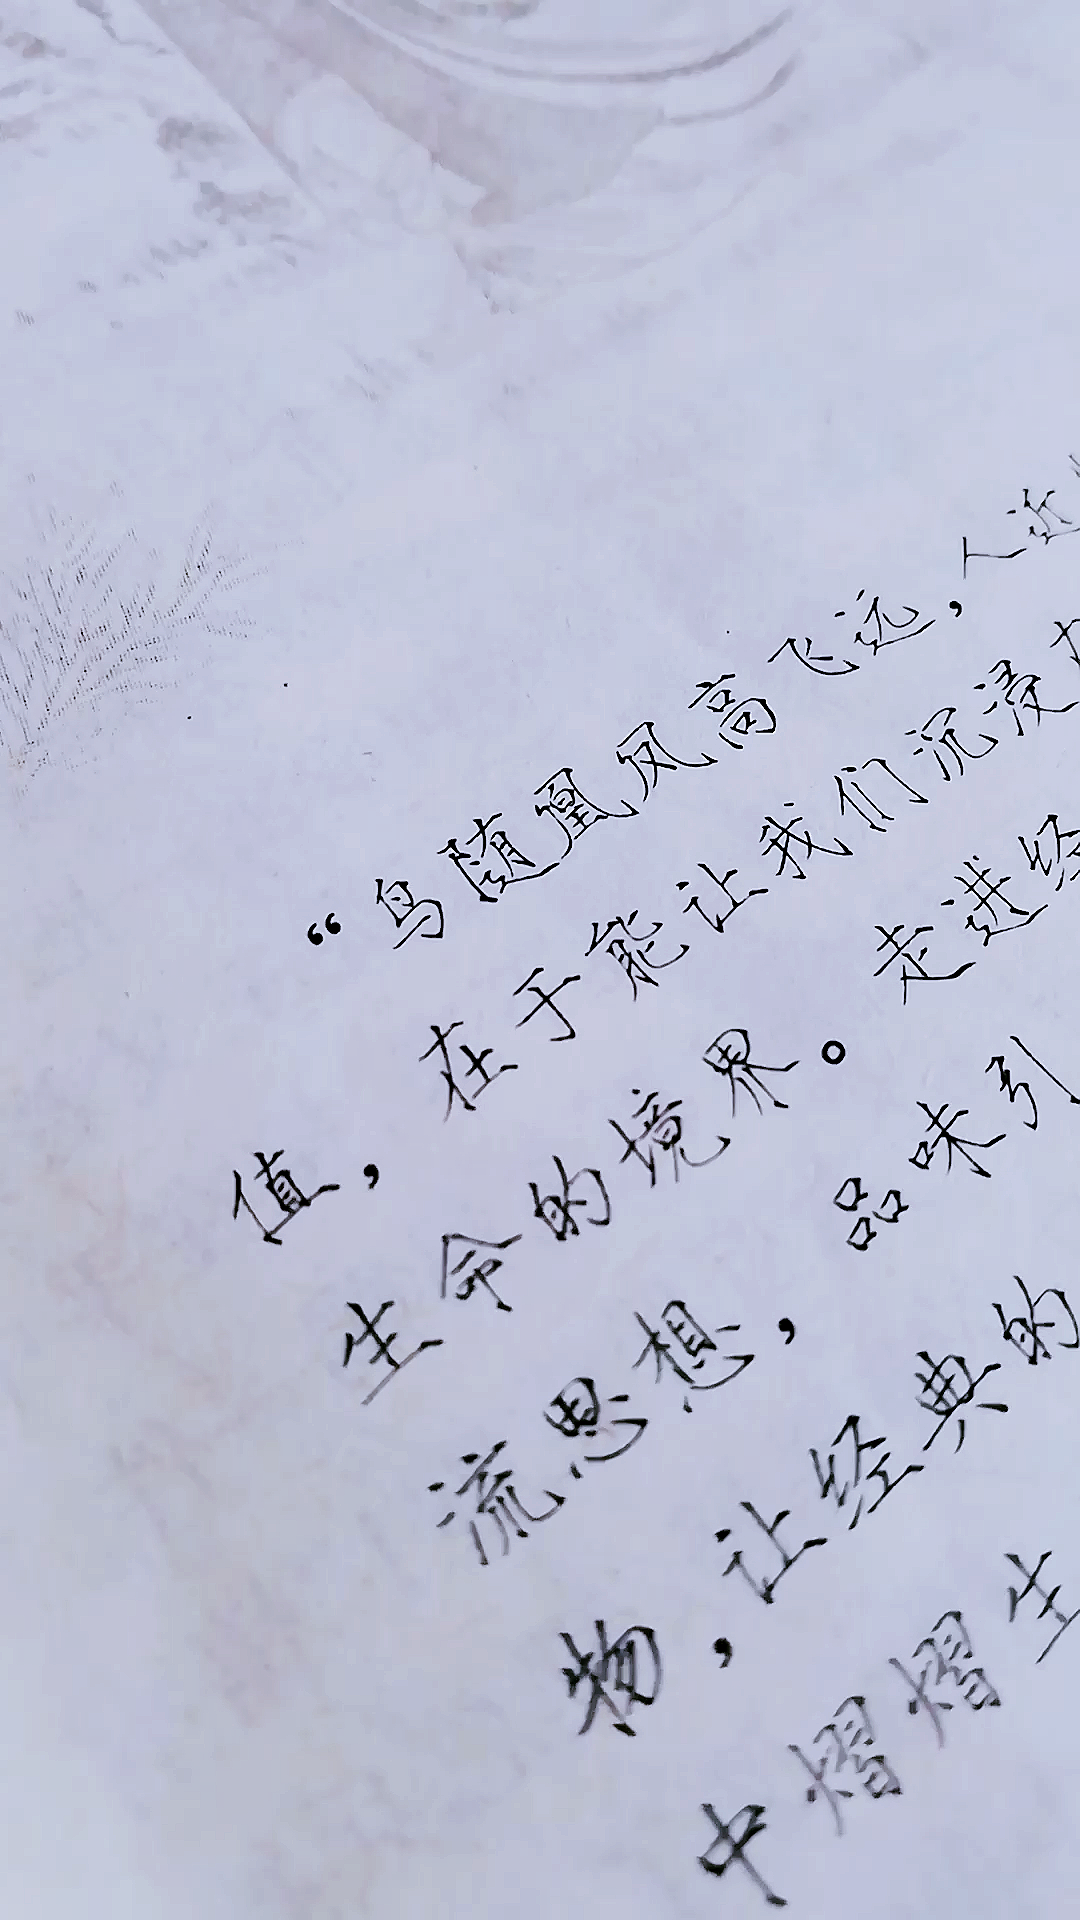 “鸟随凰凤高飞远，人近
值，在于能让我们沉浸
生命的境界。走进经
流思想，品味引
物，让经典的
中熠熠生